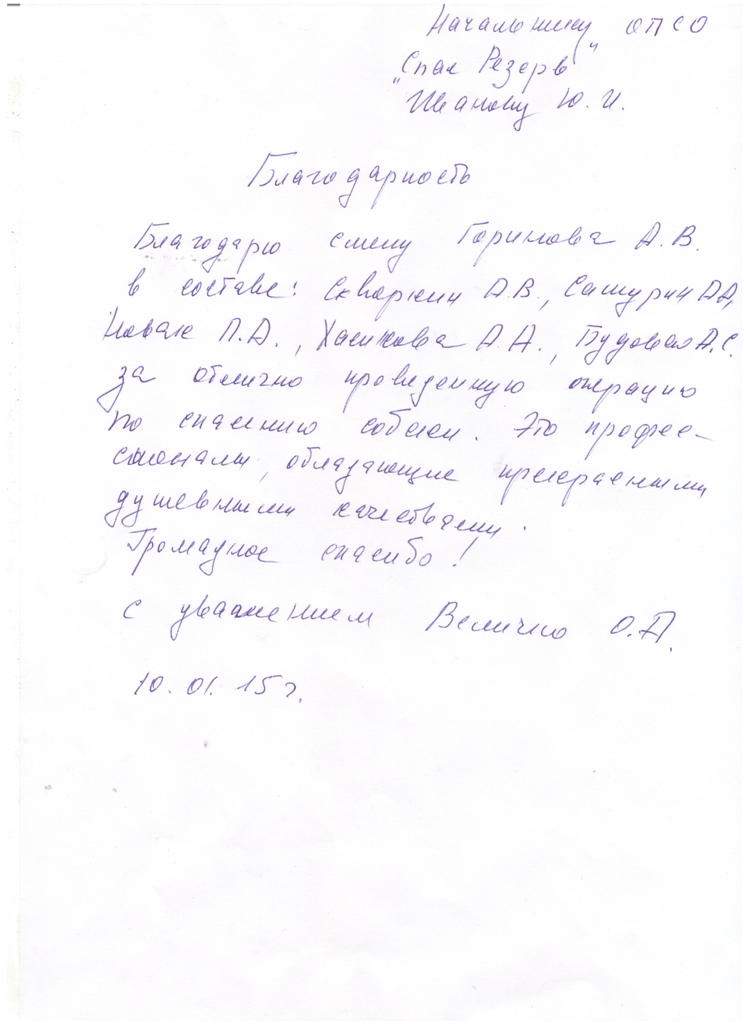 Начальнику ОПСО
"Спас Резерв"
Иванову Ю. И.
Благодарность
Благодарю смену Горинова А. В.
в составе: Скворкин А.В., Сатурин А.А.,
Новак Л.А., Хасикова А.А., Будовая А.С.
за отлично проведенную операцию
по спасению собаки. Это профес-
сионалы, обладающие прекрасными
душевными качествами.
Громадное спасибо!
С уважением Величко О.П.
10.01.15г.